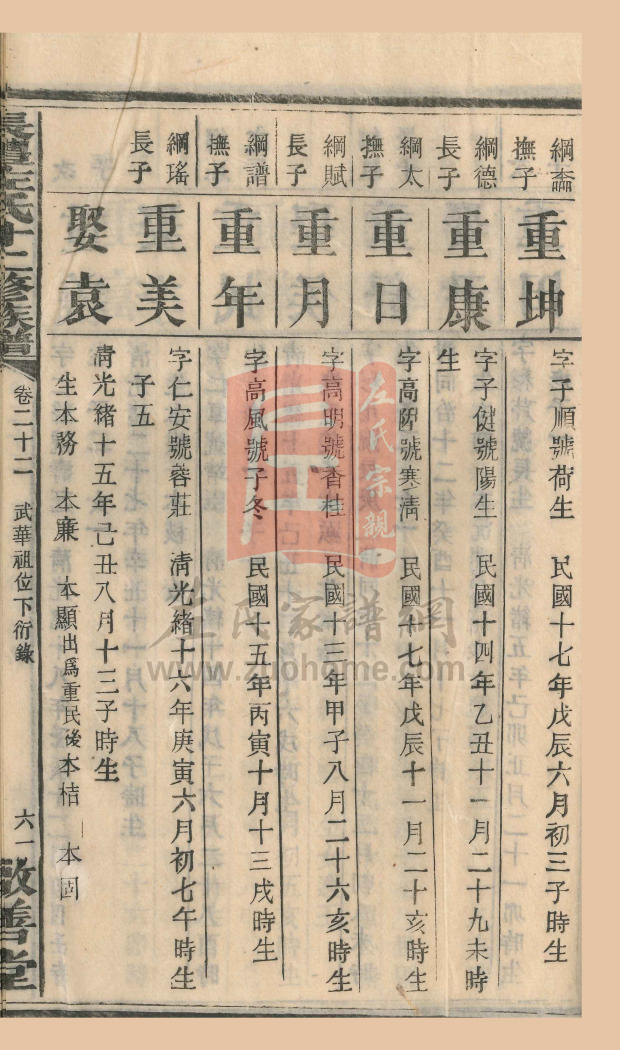 綱
撫子
重坤
字子順號荷生　民國十七年戊辰六月初三子時生
綱德
長子
重康
字子健號陽生　民國十四年乙丑十一月二十九未時
生
綱太
撫子
重日
字高陞號寒清　民國十七年戊辰十一月二十亥時生
綱賦
長子
重月
字高明號香桂　民國十三年甲子八月二十六亥時生
綱譜
撫子
重年
字高風號子冬　民國十五年丙寅十月十三戌時生
綱瑤
長子
重美
字仁安號蓉莊　清光緒十六年庚寅六月初七午時生
子五
娶袁
清光緒十五年己丑八月十三子時生
生本務　本廉　本顯出爲重民後本桔　本固
左氏十二修族譜
卷二十二　武華祖位下衍錄
六一
敬善堂
左氏宗親
左氏家譜網
www.zuohome.com